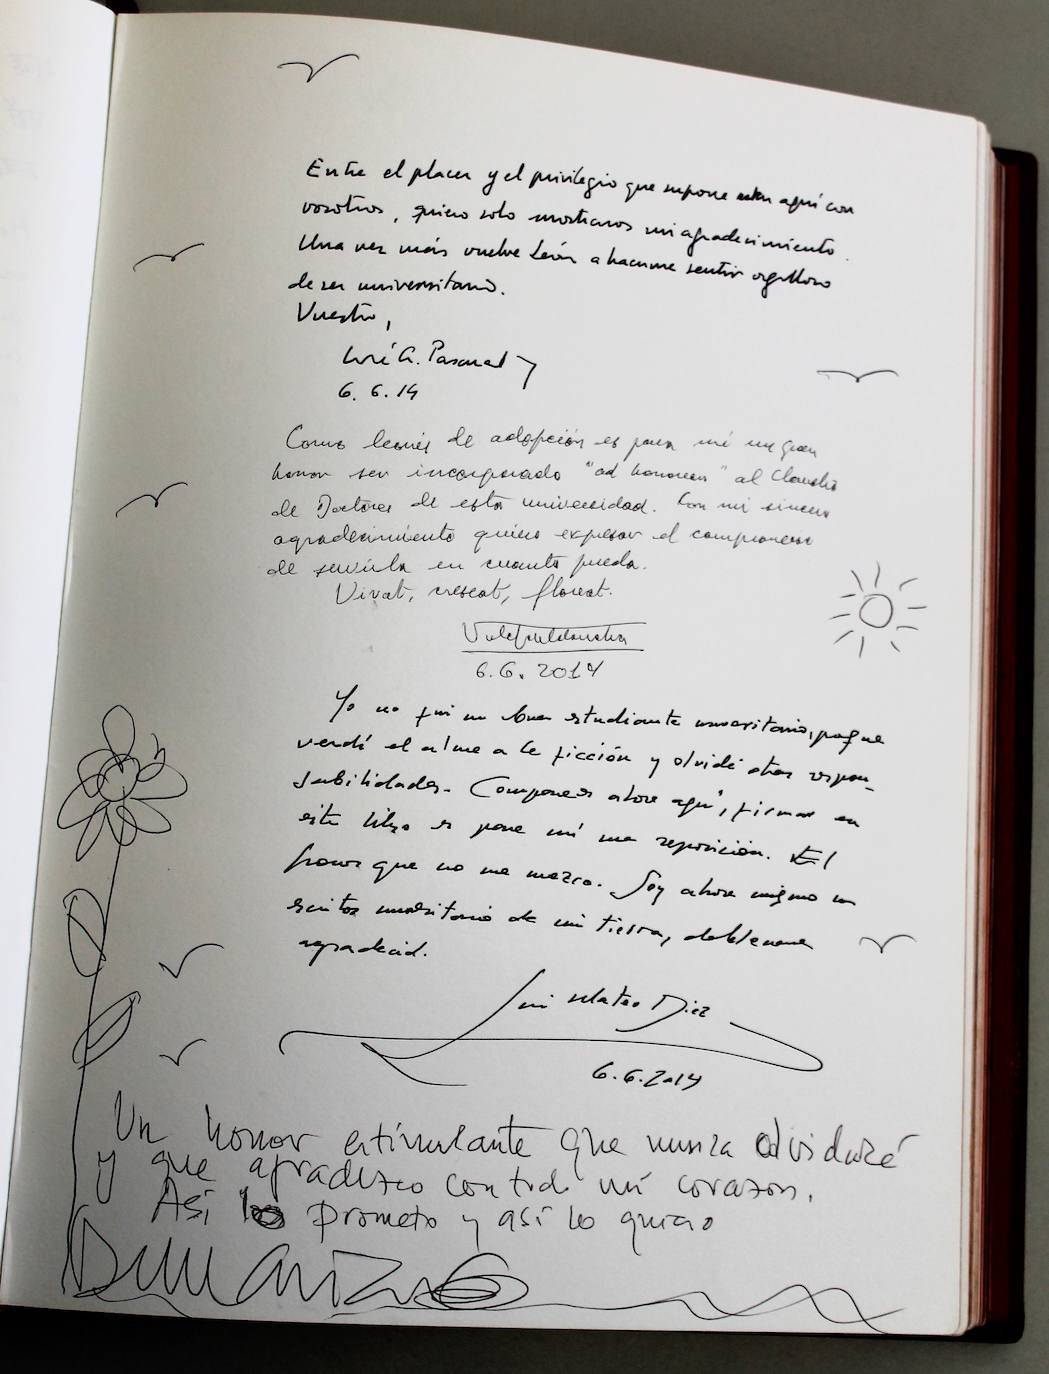 Entre el placer y el privilegio que supone estar aquí con
vosotros, quiero solo mostraros mi agradecimiento.
Una vez más vuelve León a hacerme sentir orgulloso
de ser universitario.
Vuestro,
José A. Pascual
6.6.14
Como leonés de adopción es para mí un gran
honor ser incorporado "ad honorem" al Claustro
de Doctores de esta universidad. Con mi sincero
agradecimiento quiero expresar el compromiso
de servirla en cuanto pueda.
Vivat, crescat, floreat.
6.6.2014
Yo no fui un buen estudiante universitario, porque
vendí el alma a la ficción y olvidé otras respon-
sabilidades. Comparecer ahora aquí, firmar en
este libro es para mí una reposición. El
honor que no me merezco. Soy ahora mismo un
escritor universitario de mi tierra, doblemente
agradecido.
Luis Mateo Diez
6.6.2014
Un honor estimulante que nunca olvidaré
y que agradezco con todo mi corazón.
Así lo prometo y así lo quiero